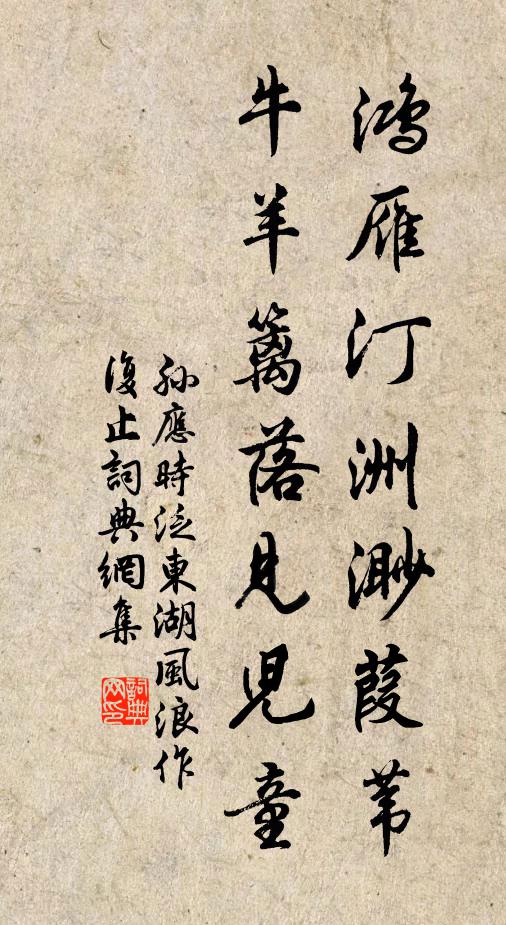 鸿雁汀洲渺葭苇
牛羊篱落見兒童
孙應時泛東湖風浪作
復止詞典網集
詞典網印